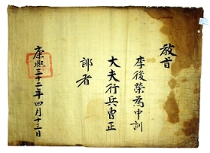 教旨
李後榮爲中訓
大夫行兵曹正
郎者
康熙三十二年四月十三日